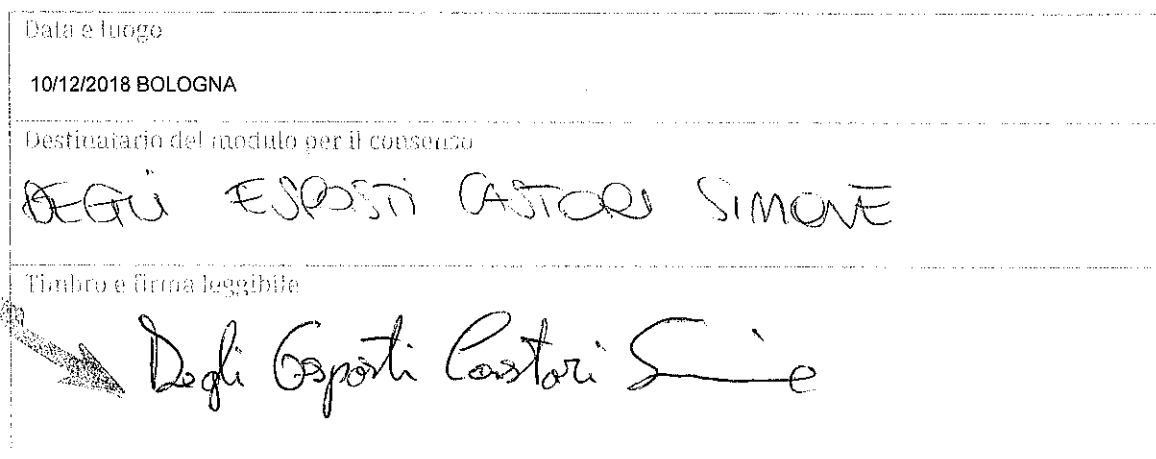 Data e luogo
10/12/2018 BOLOGNA
Destinatario del modulo per il consenso
DEGLI ESPOSTI CASTORI SIMONE
Timbro e firma leggibile
Degli Esposti Castori Simone